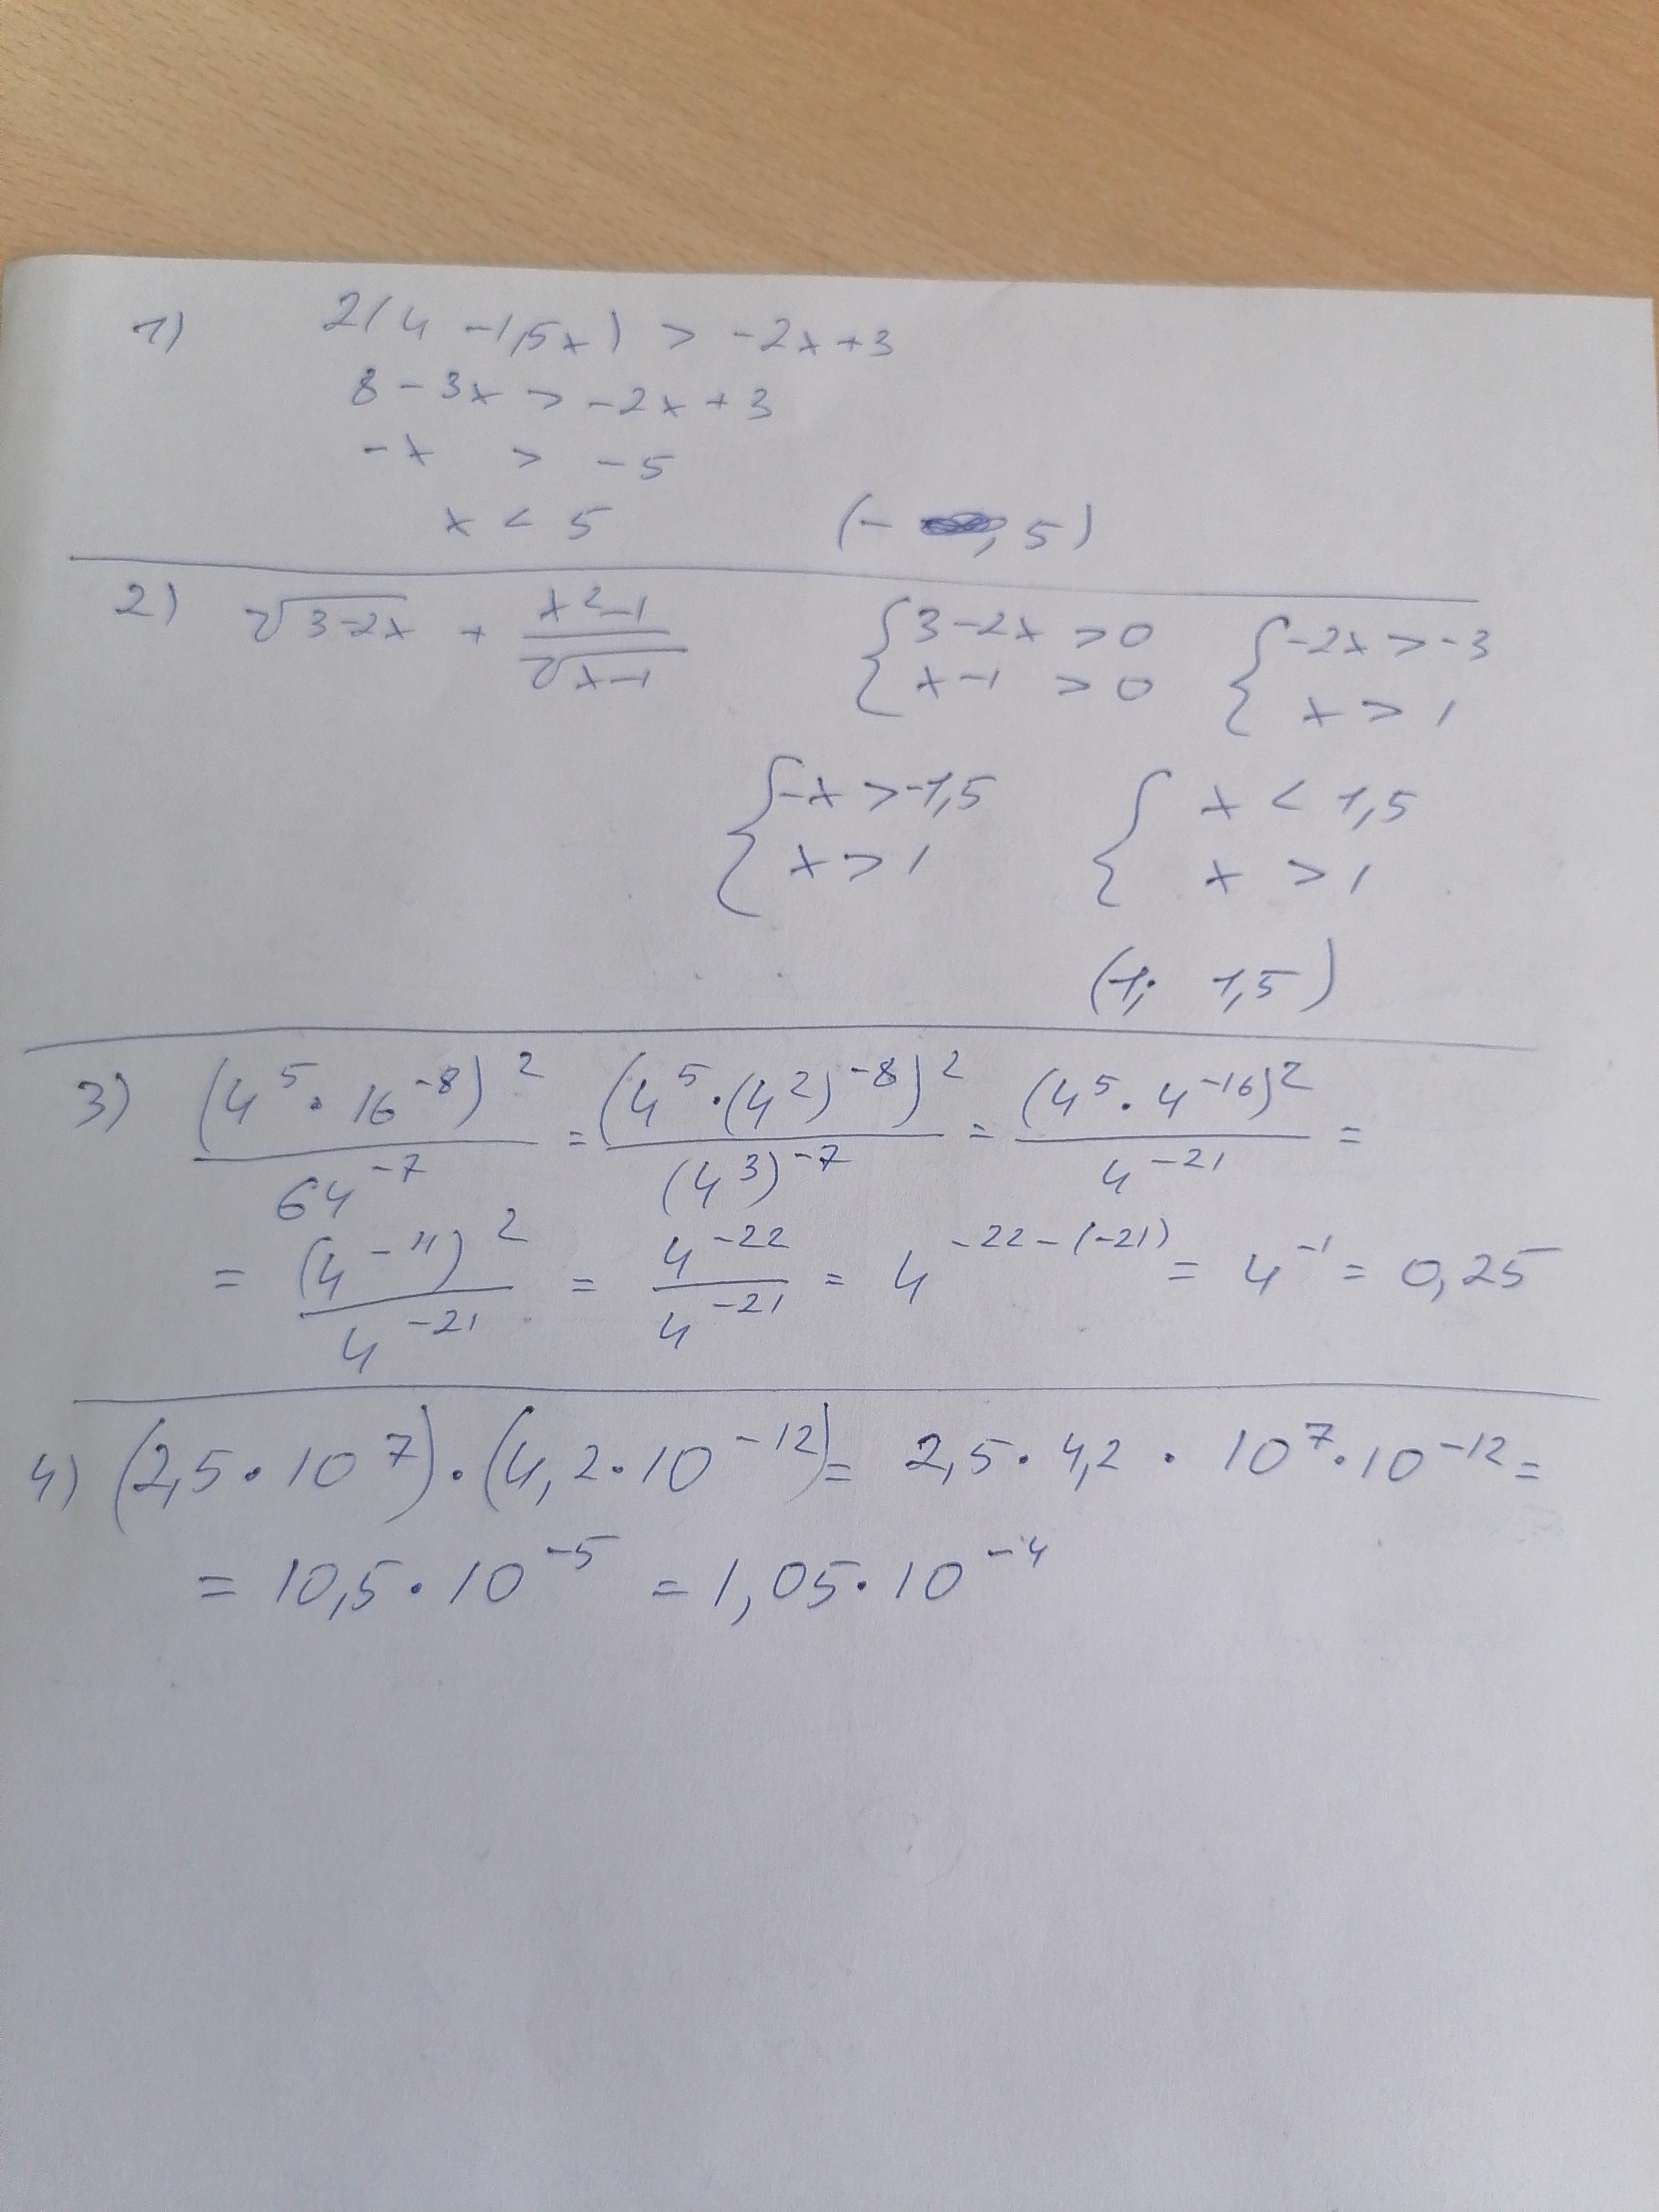 1) 2(4 -1,5x) > -2x+3
8 - 3x > -2x + 3
-x > -5
x < 5 (-∞, 5)
2) √3-2x + x²-1 / √x-1 {3-2x > 0 {-2x > -3
x-1 > 0 x > 1
{-x > -1,5 { x < 1,5
x > 1 x > 1
(1; 1,5)
3) (4⁵ · 16⁻⁸)² / 64⁻⁷ = (4⁵ · (4²)⁻⁸)² / (4³)⁻⁷ = (4⁵ · 4⁻¹⁶)² / 4⁻²¹ =
= (4⁻¹¹)² / 4⁻²¹ = 4⁻²² / 4⁻²¹ = 4⁻²²⁻⁽⁻²¹⁾ = 4⁻¹ = 0,25
4) (2,5 · 10⁷) · (4,2 · 10⁻¹²) = 2,5 · 4,2 · 10⁷ · 10⁻¹² =
= 10,5 · 10⁻⁵ = 1,05 · 10⁻⁴